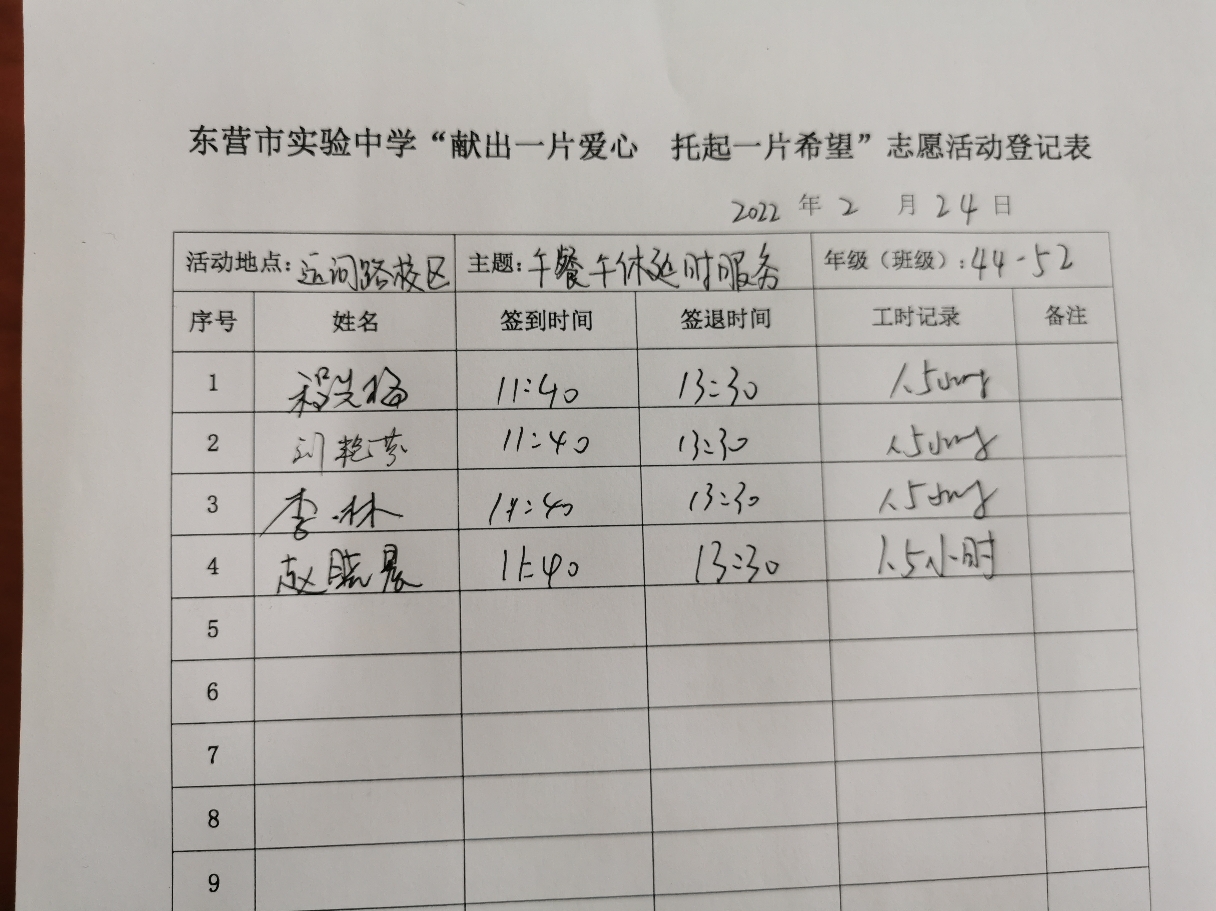 东营市实验中学“献出一片爱心 托起一片希望”志愿活动登记表
2022 年 2 月 24 日
活动地点: 运河路校区 主题: 午餐午休延时服务 年级（班级）: 44-52
序号 姓名 签到时间 签退时间 工时记录 备注
1 11:40 13:30 1.5小时
2 刘艳芬 11:40 13:30 1.5小时
3 李林 11:40 13:30 1.5小时
4 赵晓晨 11:40 13:30 1.5小时
5
6
7
8
9